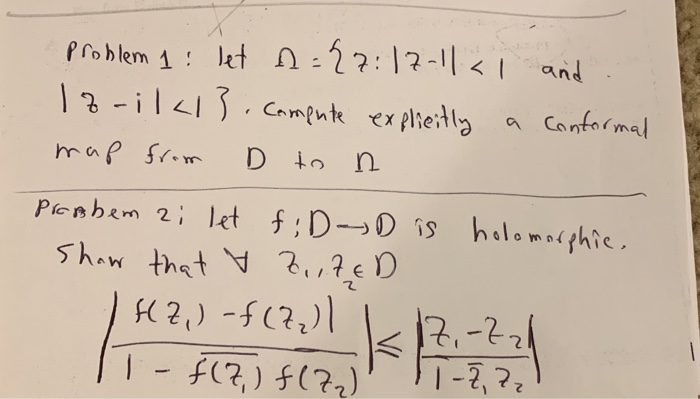 Problem 1: let Ω = {z: |z-1| < 1 and
|z-i| < 1}. Compute explicitly a conformal
map from D to Ω
Probbem 2; let f: D → D is holomorphic.
Show that ∀ z₁, z₂ ∈ D
| f(z₁) - f(z₂)| / 1 - \overline{f(z₁)} f(z₂) | ≤ | z₁ - z₂ / 1 - \overline{z}₁ z₂ |